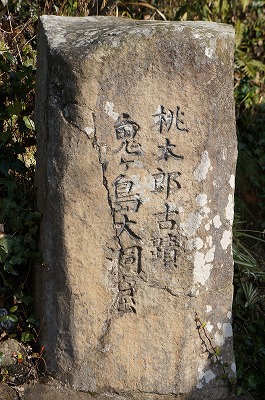 桃太郎古蹟
鬼ヶ島大洞窟